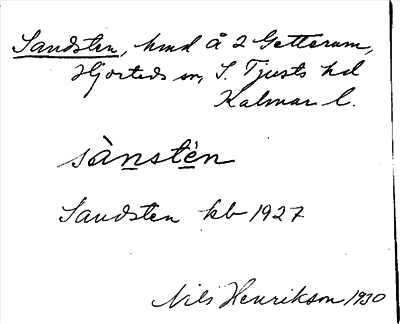 Sandsten, hmd å 2 Getterum,
Hjorteds sn, S. Tjusts hd
Kalmar l.
sànstèn
Sandsten kb 1927
Nils Henrikson 1930